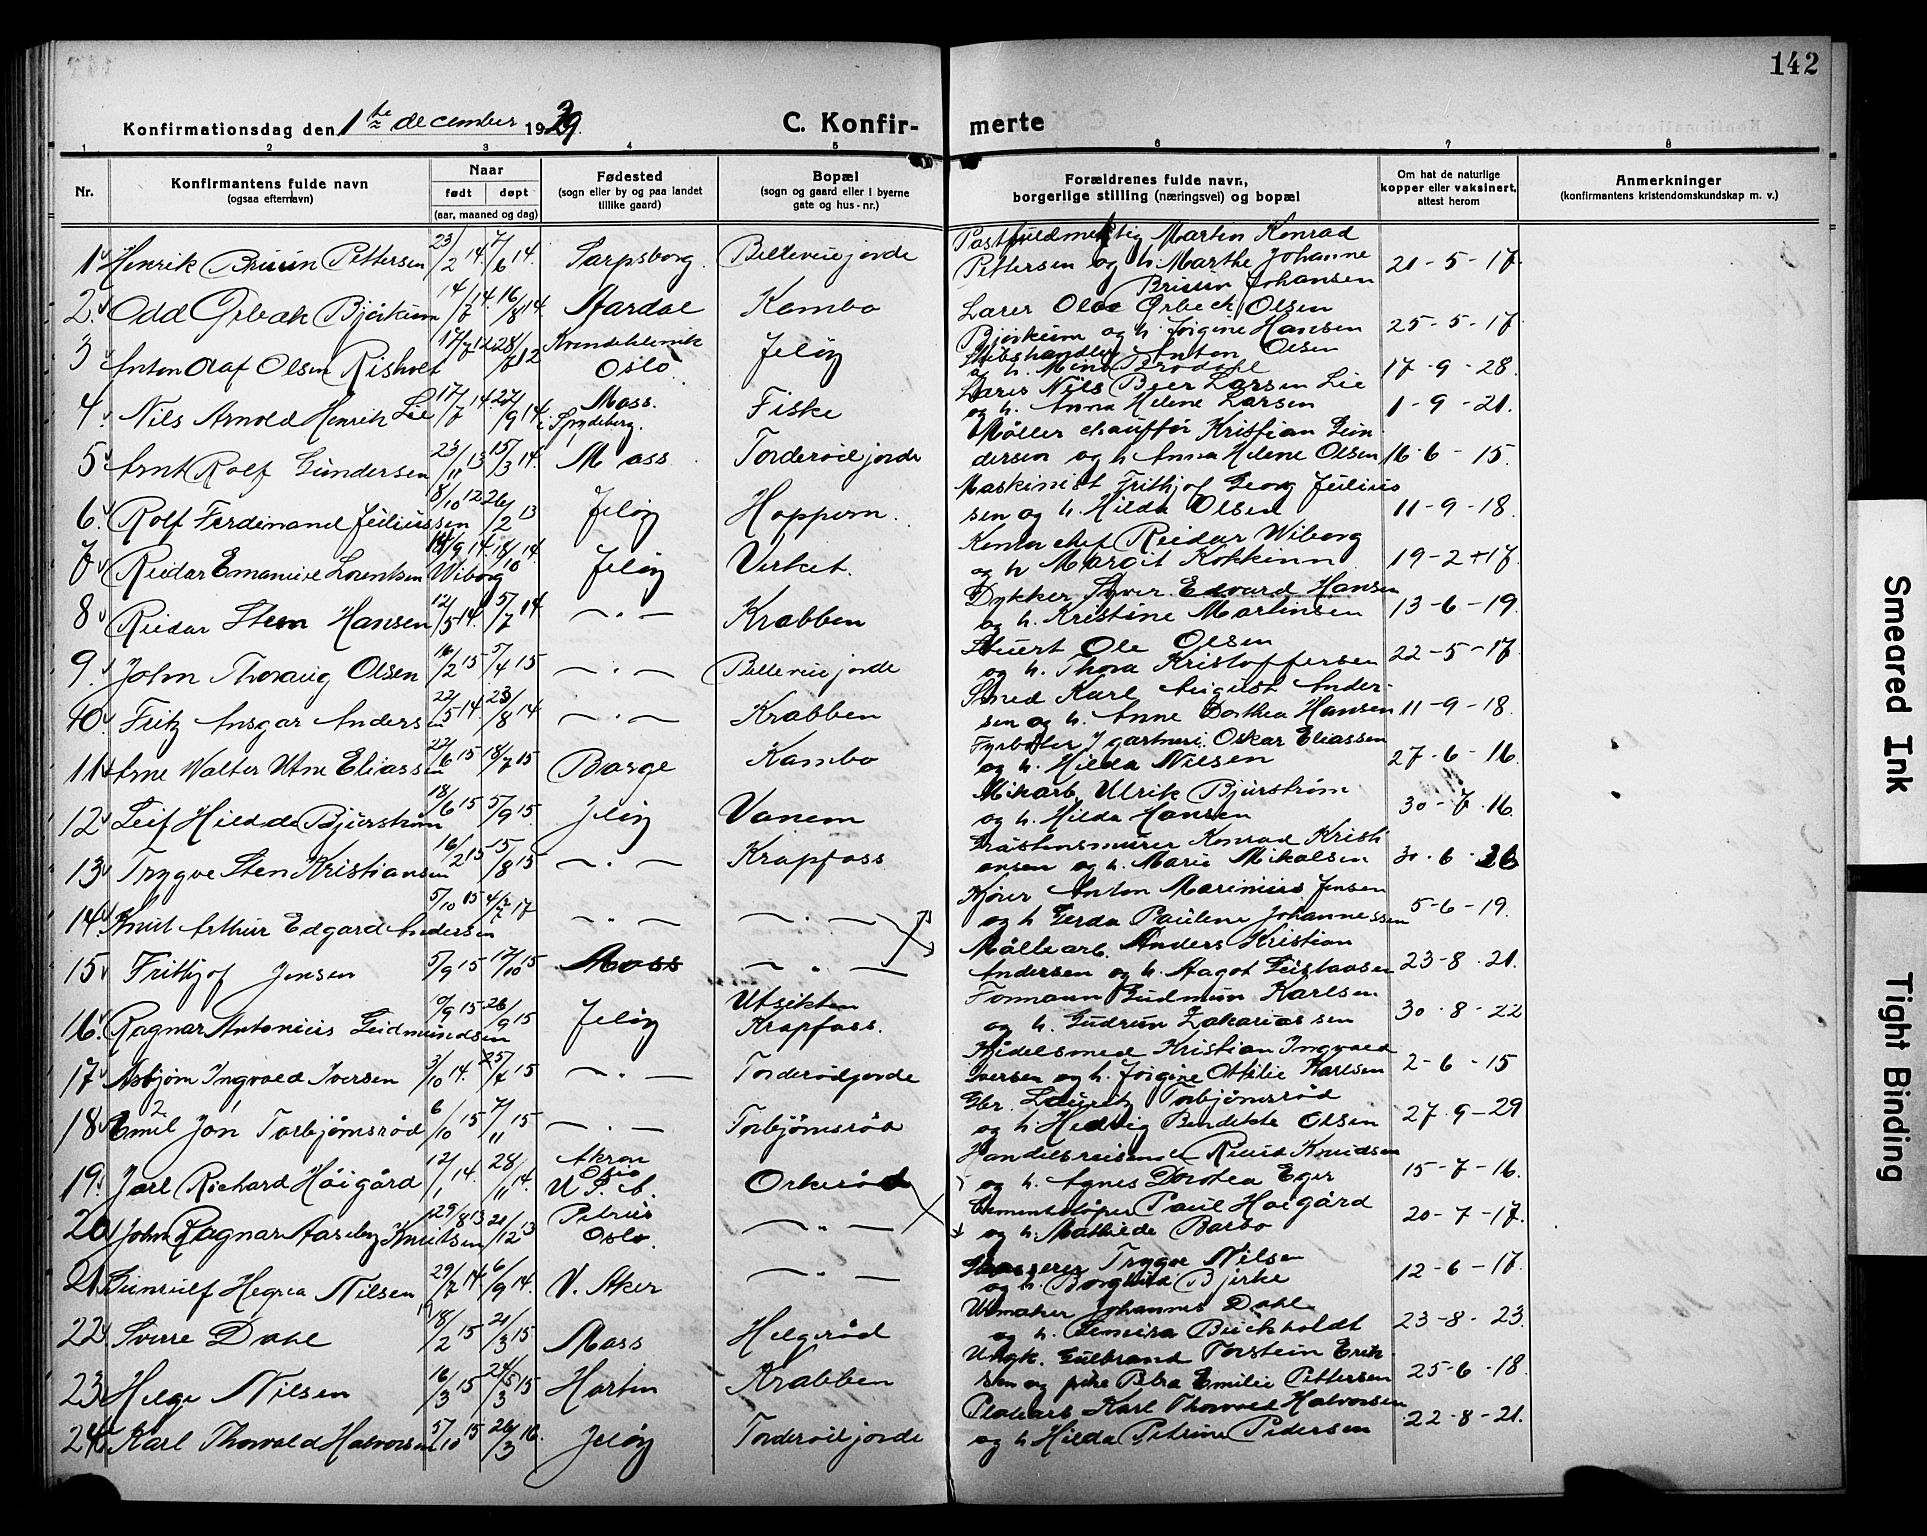 142
Konfirmationsdag den 1ste december 1929.
C. Konfirmerte
1 2 3 4 5 6 7 8
Nr. Konfirmantens fulde navn (ogsaa efternavn) Naar født døpt (aar, maaned og dag) Fødested (sogn eller by og paa landet tillike gaard) Bopæl (sogn og gaard eller i byerne gate og hus-nr.) Forældrenes fulde navn, borgerlige stilling (næringsvei) og bopæl Om hat de naturlige kopper eller vaksinert, attest herom Anmerkninger (konfirmantens kristendomskundskap m. v.)
1 Henrik Bruun Pettersen 23/2 14. 7/6 14. Sarpsborg. Bellevuejorde Postfuldmektig Martin Konrad Pettersen og h. Marthe Johanne Bruun Johansen 21-5-17.
2. Odd Ørbech Bjørkum 14/7 14. 16/8 14. Aardal Kambo Lærer Olav Ørbech Olsen Bjørkum og h. Jørgine Hansen 25-5-17
3 Anton Olaf Olsen Risholt Oslo Jeløy Skibshandler Anton Olsen og h. Mina Brodahl 17-9-28.
4. Nils Arnold Henrik Lie 17/7 14. 27/9 14. Moss. i Spydeberg. Fiske Nils Peer Larsen Lie og h. Anna Helene Larsen 1-9-21.
5 Arnt Rolf Gundersen 23/11 13 15/3 14. Moss Torderødjorde Møller chauffør Kristian Gundersen og h Anna Helene Olsen 16-6-15.
6. Rolf Ferdinand Juliussen 8/10 12 26/2 13 Jeløy Hoppern. Maskinist Frithjof Georg Juliussen og h. Hilda Olsen 11-9-18.
7 Reidar Emanuel Lorentsen Wiborg Jeløy Verket. Kontorchef Reidar Wiborg og h Margit Kokkinn 19-2-17.
8 Reidar Sten Hansen 12/5 14. 5/7 14. — " — Krabben Dykker Syver Edvard Hansen og h. Kristine Martinsen 13-6-19.
9. John Thoraug Olsen 16/2 15 5/4 15 — " — Bellevuejorde Stuert Ole Olsen og h. Thora Kristoffersen 22-5-17.
10. Fritz Ansgar Andersen 22/5 14. 23/8 14 — " — Krabben Smed Karl August Andersen og h. Anne Dorthea Hansen 11-9-18.
11 Arne Walter Utne Eliassen 22/6 15 18/7 15 Borge Kambo Fyrbøter I gartneri Oskar Eliassen og h. Hilda Nilsen 27-6-16.
12 Leif Hildde Bjurstrøm 18/6 15 5/9 15. Jeløy Vanem Ulrik Bjurstrøm og h. Hilda Hansen 30-7-16.
13 Trygve Sten Kristiansen 16/2 15 15/8 15 — " — Krapfoss Gråstensmurer Konrad Kristiansen og h. Marie Mikalsen 30-6-26
14. Knut Arthur Edgard Andersen 5/10 15 — " — — " — Kjører Anton Marinius Jensen og h Gerda Pauline Johannessen 5-6-19.
15 Frithjof Jensen 5/9 15 17/10 15 Moss — " — Møllearb. Anders Kristian Andersen og h. Aagot Gustavsen 23-8-21.
16. Ragnar Antonius Gudmundsen 26/9 15 Jeløy Utsikten Krapfoss. Formann Gudmun Karlsen og h. Gudrun Zakariassen 30-8-22
17 Asbjørn Ingvald Iversen 3/10 14. 25/7 15 — " — Torderødjorde Kjedelsmed Kristian Ingvald Iversen og h. Jørgine Ottilie Karlsen 2-6-15
18 Emil Jon Torbjørnsrød 6/10 15 7/11 15 — " — Torbjørnsrød Gbr. Lauritz Torbjørnsrød og h Hedvig Bendikte Olsen 27-9-29
19. Jarl Richard Høigård 12/1 14. 28/11 14. Akron Ohio U.S.A. Orkerød Handelsreisende Knudsen og h. Agnes Dorotea Eger 15-7-16.
20 John Ragnar Aaseby Knutsen 29/8 13 21/12 13 Petrus Oslo. — " — Paul Høigård og h. Mathilde Barbo 20-7-17.
21. Gunnulf Hegrea Nilsen 29/7 14. 6/9 14. V. Aker — " — Trygve Nilsen og h. Borghild Bjerke 12-6-17.
22. Sverre Dahl 18/2 15 21/3 15 Moss Helgerød Urmaker Johannes Dahl og h. Buckholdt 23-8-23.
23 Helge Nilsen 16/3 15 Horten Krabben Ungk. Gulbrand Torstein Eriksen og pike Petra Emilie Pettersen 25-6-18.
24. Karl Thorvald Halvorsen 5/10 15 26/3 16. Jeløy Torderødjorde Karl Thorvald Halvorsen og h Hilda Petrine Pedersen 22-8-21.
Smeared Ink
Tight Binding